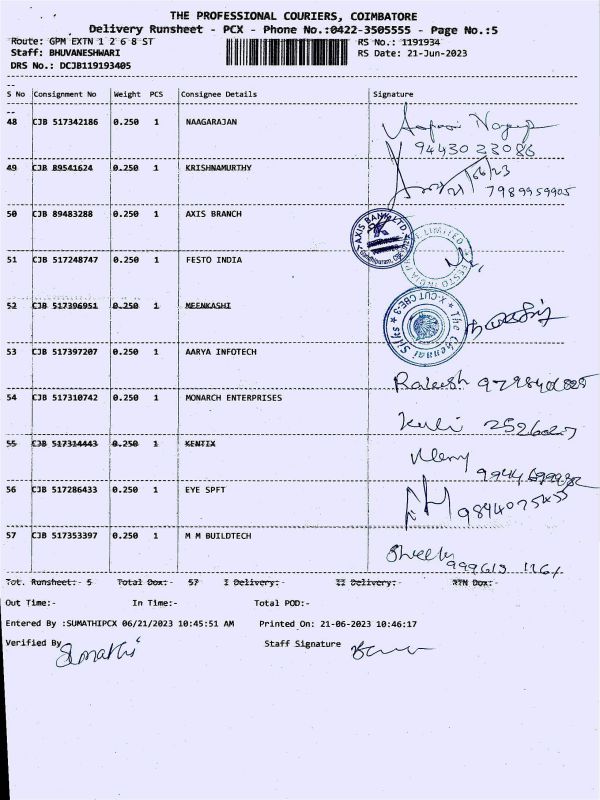 THE PROFESSIONAL COURIERS, COIMBATORE
Delivery Runsheet - PCX - Phone No.:0422-3505555 - Page No.:5
Route: GPM EXTN 1 2 6 8 ST RS No.: 1191934
Staff: BHUVANESHWARI RS Date: 21-Jun-2023
DRS No.: DCJB119193405
S No Consignment No Weight PCS Consignee Details Signature
48 CJB 517342186 0.250 1 NAAGARAJAN
9443023086
49 CJB 89541624 0.250 1 KRISHNAMURTHY
7989959905
50 CJB 89483288 0.250 1 AXIS BRANCH
AXIS BANK LTD.
51 CJB 517248747 0.250 1 FESTO INDIA
FESTO INDIA LIMITED
52 CJB 517396951 0.250 1 MEENKASHI
The Chennai Silks
X-CUT CBE-3
53 CJB 517397207 0.250 1 AARYA INFOTECH
Rakesh
54 CJB 517310742 0.250 1 MONARCH ENTERPRISES
55 CJB 517314443 0.250 1 KENTIX
56 CJB 517286433 0.250 1 EYE SPFT
9894075455
57 CJB 517353397 0.250 1 M M BUILDTECH
Tot. Runsheet:- 5 Total Dox:- 57 I Delivery:- II Delivery:- RTN Dox:-
Out Time:- In Time:- Total POD:-
Entered By :SUMATHIPCX 06/21/2023 10:45:51 AM Printed On: 21-06-2023 10:46:17
Verified By Sumathi Staff Signature